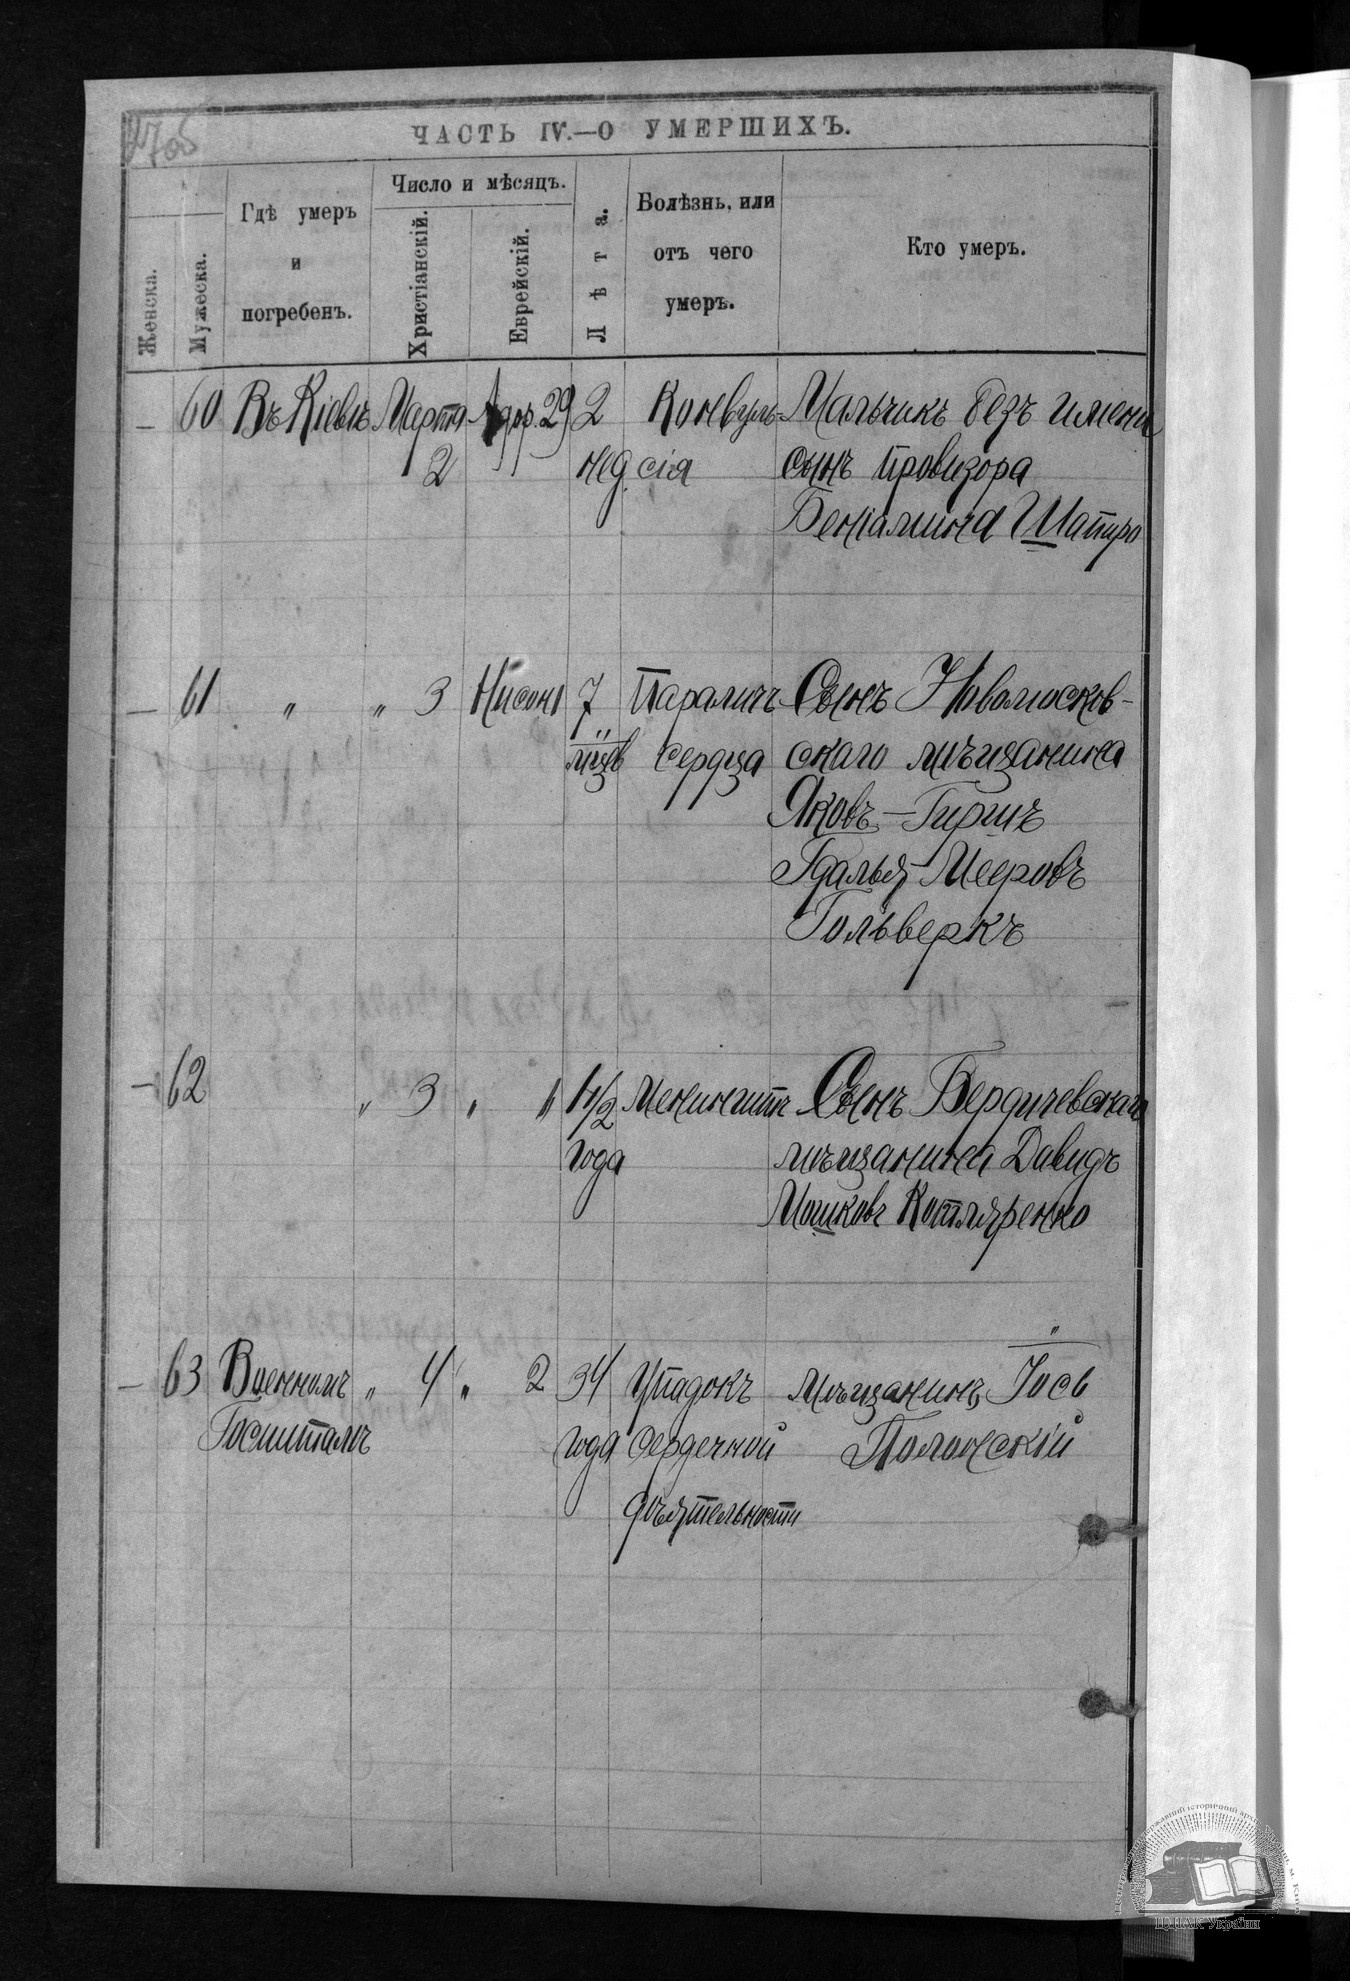 ЧАСТЬ IV.—О УМЕРШИХЪ.
Женска.
Мужеска.
Гдѣ умеръ
и
погребенъ.
Число и мѣсяцъ.
Христіанскій.
Еврейскій.
Лѣта.
Болѣзнь, или
отъ чего
умеръ.
Кто умеръ.
— 60 Въ Кіевѣ Марта Адор. 29 2 Конвуль- Мальчикъ безъ имени
2 нед. сія сынъ провизора
Беніамина Шапиро
— 61 " " 3 Нисон 1 7 Параличъ Сынъ Новомосков-
мцв сердца скаго мѣщанина
Яковъ-Гиршъ
Гдалья Мееровъ
Гольверкъ
— 62 " 3 " " 1 1/2 Менингитъ Сынъ Бердичевскаго
года мѣщанина Давидъ
Мошковъ Котляренко
— 63 Военномъ " 4 " 2 34 Упадокъ мѣщанинъ Іось
Госпиталѣ года сердечной Полонскій
дѣятельности
ЦДІАК України